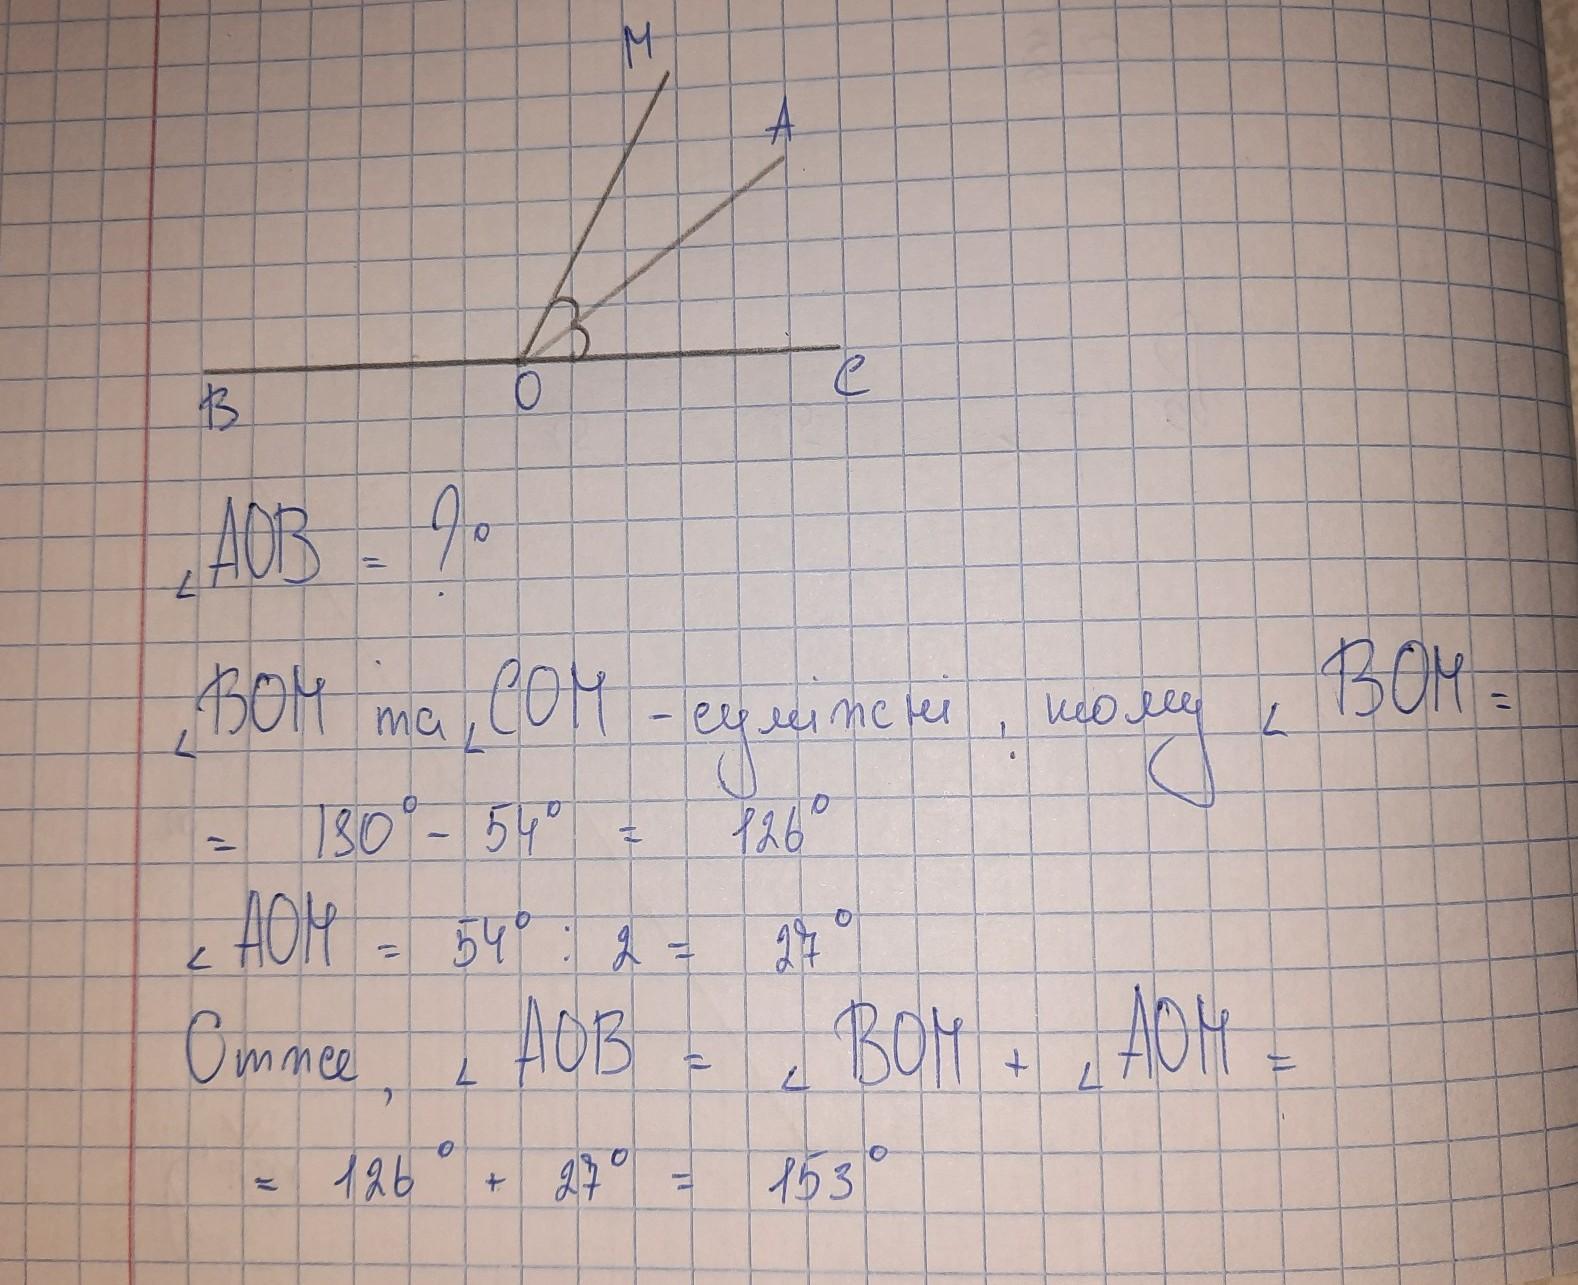 M
A
B
O
C
∠AOB = ?°
∠BOM та ∠COM - суміжні, тому ∠BOM =
= 180° - 54° = 126°
∠AOM = 54° : 2 = 27°
Отже, ∠AOB = ∠BOM + ∠AOM =
= 126° + 27° = 153°